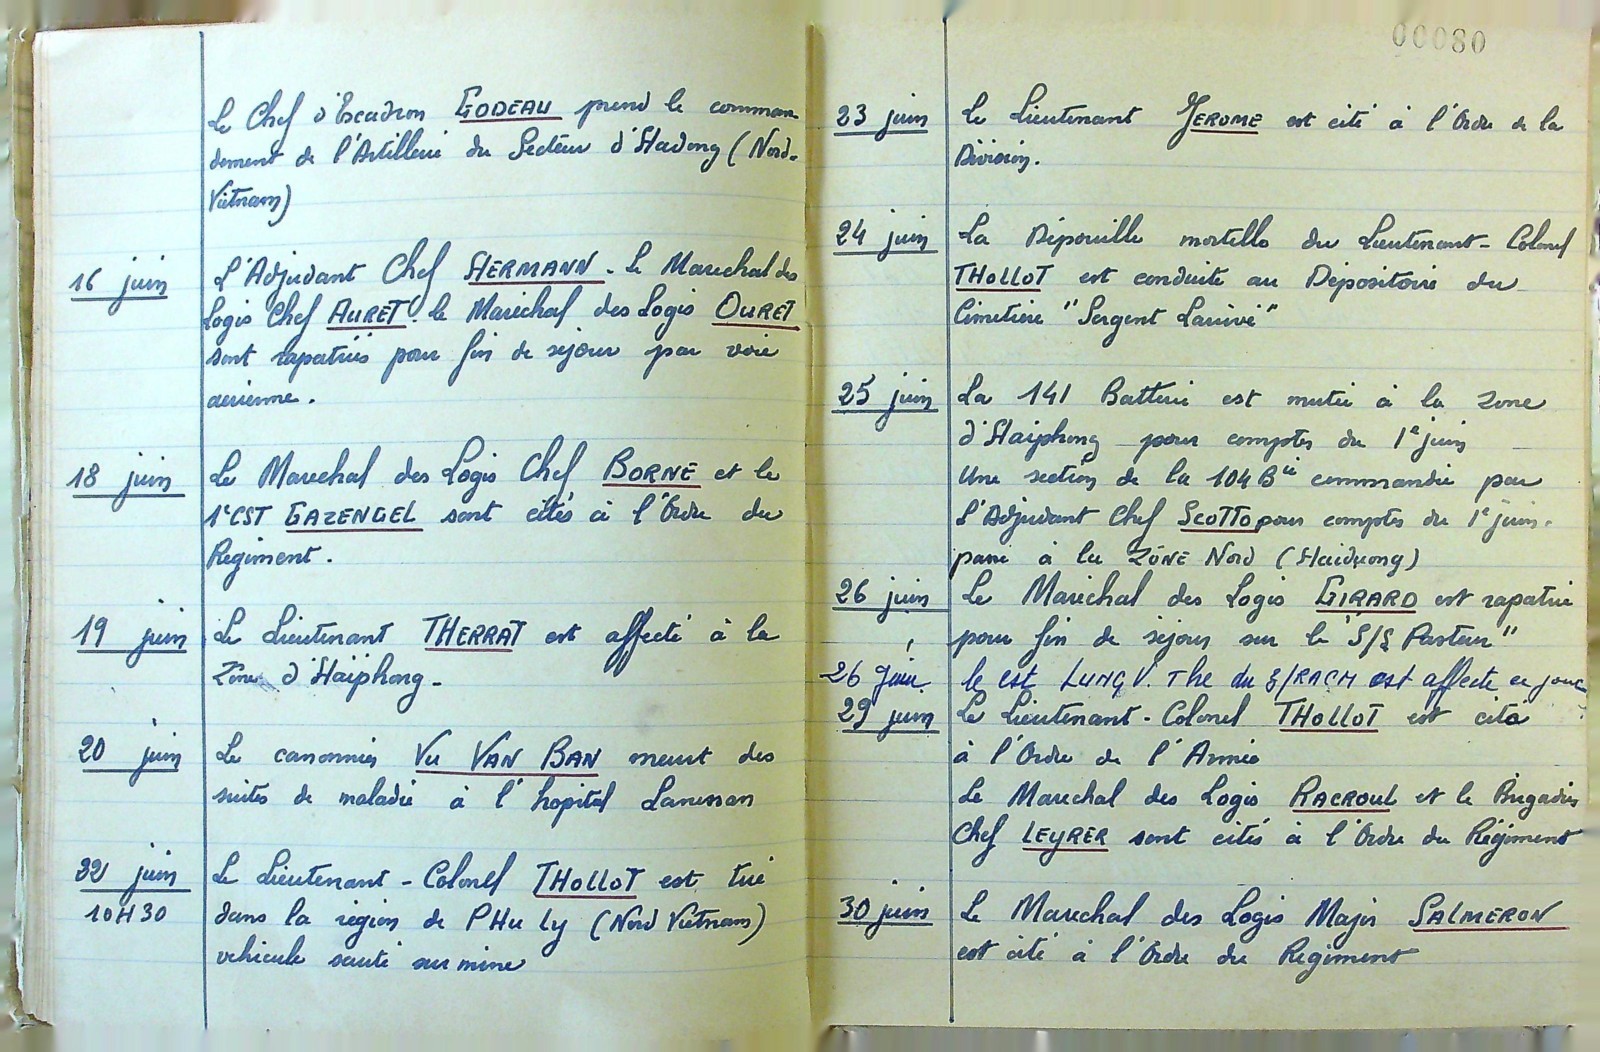 Le Chef d'Escadron GODEAU prend le comman
dement de l'Artillerie du Secteur d'Hadong (Nord-
Vietnam)
16 juin L'Adjudant Chef HERMANN - Le Marechal des
Logis Chef AURET. le Maréchal des Logis OURET
sont rapatriés pour fin de séjour par voie
aerienne.
18 juin Le Marechal des Logis Chef BORNE et le
1°CST GAZENGEL sont cités à l'Ordre du
Regiment.
19 juin Le Lieutenant THERRAT est affecté à la
Zône d'Haiphong-
20 juin Le canonnier VU VAN BAN meurt des
suites de maladie à l'hopital Lanessan
22 juin Le Lieutenant-Colonel THOLLOT est tué
10H30 dans la région de PHU LY (Nord Vietnam)
vehicule sauté sur mine
00080
23 juin Le Lieutenant JEROME est cité à l'Ordre de la
Division.
24 juin La Dépouille mortelle du Lieutenant-Colonel
THOLLOT est conduite au Dépositoire du
Cimetière "Sergent Larivé"
25 juin La 141 Batterie est mutée à la zone
d'Haiphong pour compter du 1° juin
Une section de la 104 Bie commandée par
l'Adjudant Chef SCOTTO pour compter du 1° juin.
passe à la ZÔNE Nord (Haiduong)
26 juin Le Maréchal des Logis GIRARD est rapatrié
pour fin de séjour sur le "S/S Pasteur"
26 Juin. le cst LUNG V. The du est affecte ce jour
29 juin Le Lieutenant-Colonel THOLLOT est cité
à l'Ordre de l'Armée
Le Marechal des Logis RACROUL et le Brigadier
Chef LEYRER sont cités à l'Ordre du Régiment
30 juin Le Marechal des Logis Major SALMERON
est cité à l'Ordre du Régiment